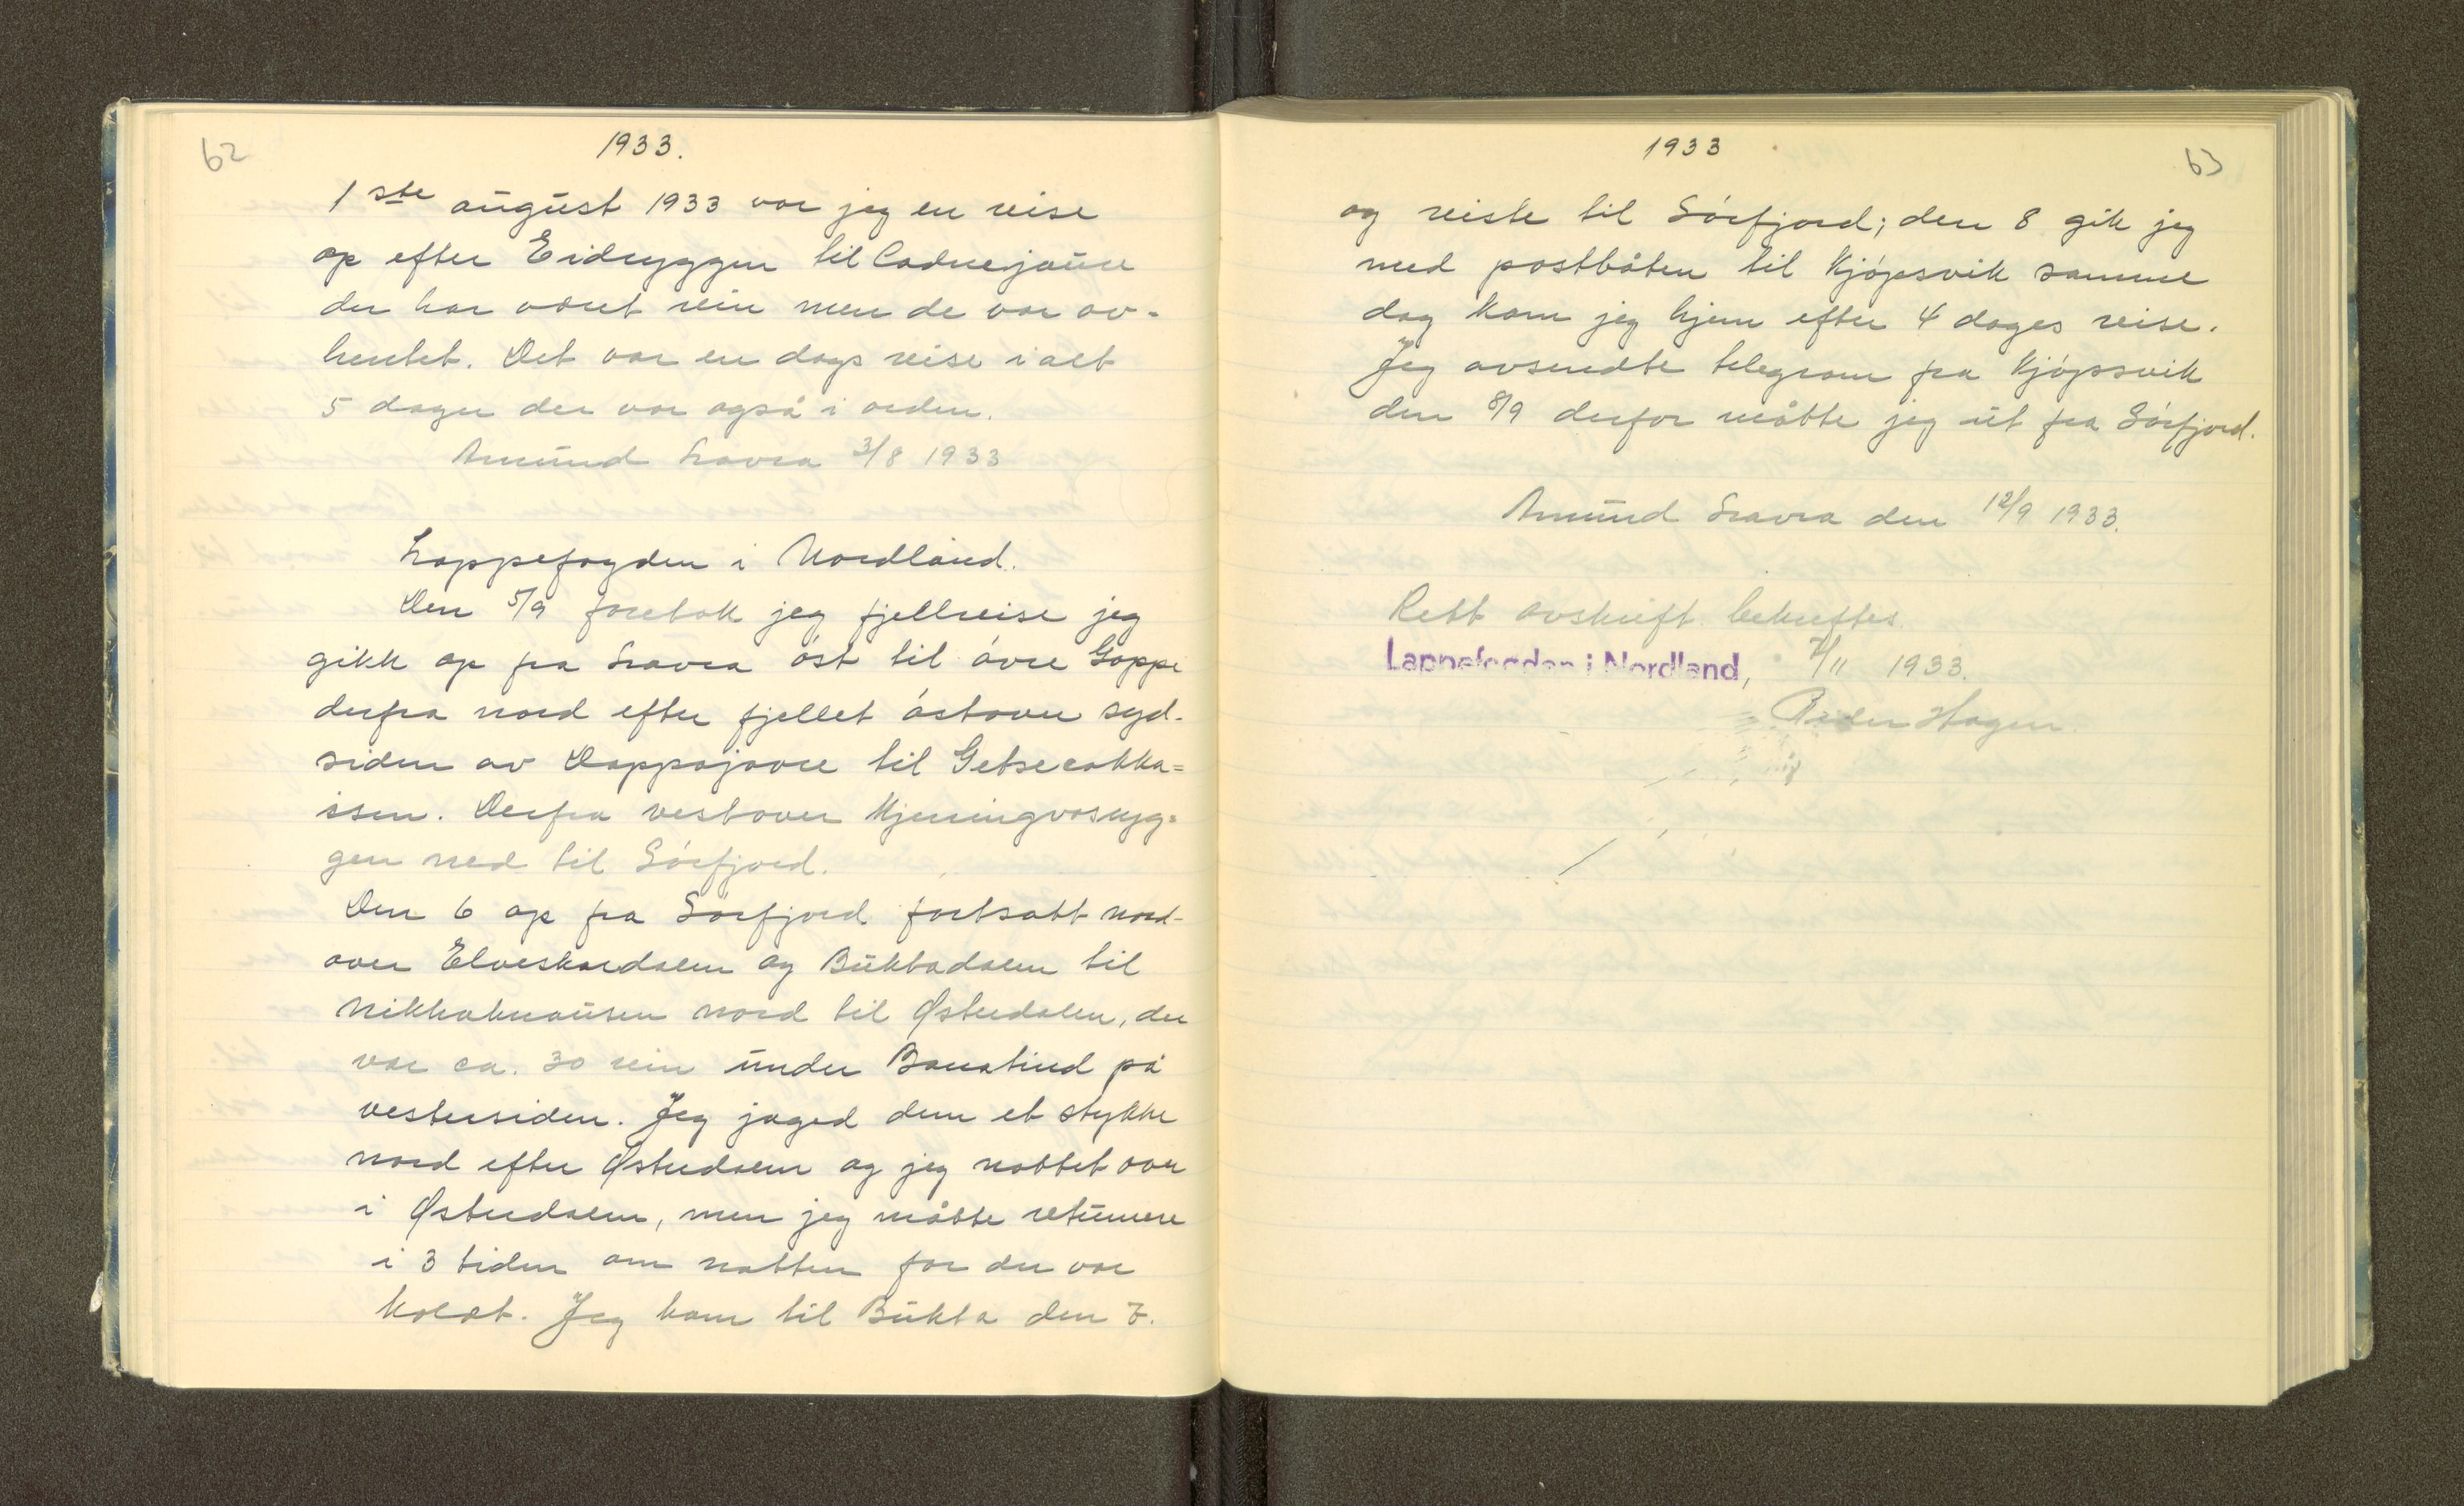 62
1933.
1ste august 1933 var jeg en reise
op efter Eidryggen til Cadnejaure
der har været rein men de var av-
hentet. Det var en dags reise i alt
5 dager der var også i orden.
Amund Sravra 3/8 1933
Lappefogden i Nordland.
Den 5/9 foretok jeg fjellreise jeg
gikk op fra Sravra øst til øvre Goppe
derfra nord efter fjellet østover syd-
siden av Doppajavre til Getsecokka=
issen. Derfra vestover Kjerringvasryg=
gen ned til Sørfjord.
Den 6 op fra Sørfjord fortsatt nord-
over Elveskardalen og Buktadalen til
nord til Østerdalen, der
var ca. 30 rein under Banatind på
vestersiden. Jeg jaged dem et stykke
nord efter Østerdalen og jeg nattet over
i Østerdalen, men jeg måtte returnere
i 3 tiden om natten for der var
koldt. Jeg kom til Bukta den 7.
1933
63
og reiste til Sørfjord; den 8 gik jeg
med postbåten til Kjøpsvik samme
dag kom jeg hjem efter 4 dages reise.
Jeg avsendte telegram fra Kjøpsvik
den 8/9 derfor måtte jeg ut fra Sørfjord.
Amund Sravra den 12/9 1933.
Rett avskrift bekreftes
Lappefogden i Nordland, /11 1933.
Peder Hagen.